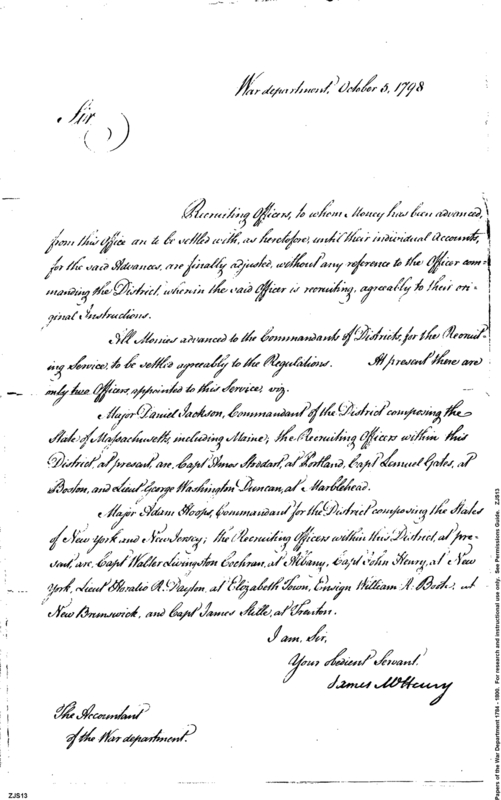 War department, October 5, 1798
Sir
Recruiting Officers, to whom Money has been advanced,
from this Office are to be settled with, as heretofore, until their individual Accounts,
for the said Advances, are finally adjusted, without any reference to the Officer com-
manding the District, wherein the said Officer is recruiting, agreably to their ori-
ginal Instructions.
All Monies advanced to the Commandants of Districts, for the Recruit-
ing Service, to be settled agreeably to the Regulations. At present there are
only two Officers, appointed to this Service, viz.
Major Daniel Jackson, Commandant of the District composing the
State of Massachusetts, including Maine; the Recruiting Officers within this
District, at present, are, Capt Amos Stoddart, at Portland, Capt Lemuel Gates, at
Boston, and Lieut George Washington Duncan, at Marblehead.
Major Adam Hoops, Commandant for the District composing the States
of New York and New Jersey; the Recruiting Officers within this District, at pre-
sent, are, Capt Walter Livingston Cochran, at Albany, Capt John Henry, at New
York, Lieut Horatio R. Dayton, at Elizabeth Town, Ensign William A. at
New Brunswick, and Capt James Stille, at Trenton.
I am, Sir,
Your obedient Servant.
James McHenry
The Accountant
of the War department.
ZJS13
Papers of the War Department 1784 - 1800. For research and instructional use only. See Permissions Guide. ZJS13